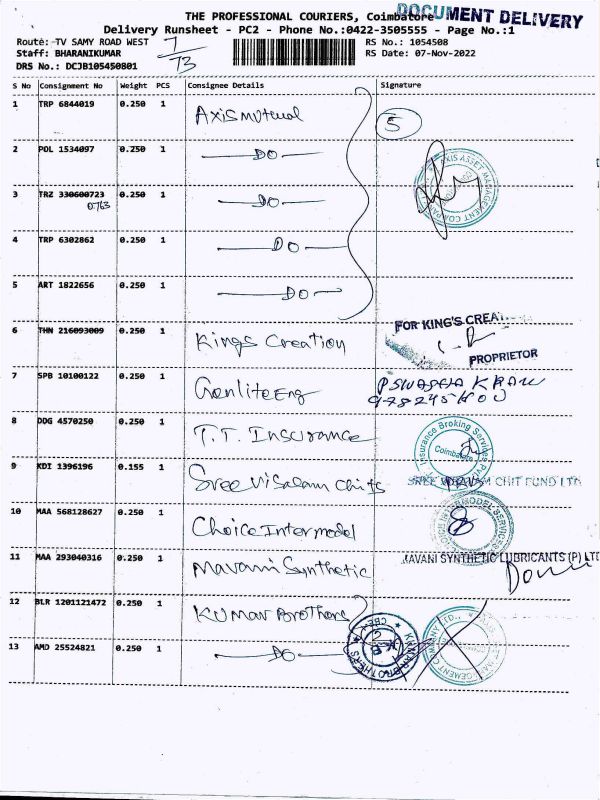 THE PROFESSIONAL COURIERS, Coimbatore
DOCUMENT DELIVERY
Delivery Runsheet - PC2 - Phone No.:0422-3505555 - Page No.:1
Route: TV SAMY ROAD WEST
7/73
RS No.: 1054508
Staff: BHARANIKUMAR
RS Date: 07-Nov-2022
DRS No.: DCJB105450801
S No Consignment No Weight PCS Consignee Details Signature
1 TRP 6844019 0.250 1 Axis mutual
5
2 POL 1534097 0.250 1 DO
AXIS ASSET MANAGEMENT COMPANY
3 TRZ 330600723 0.250 1 DO
0763
4 TRP 6302862 0.250 1 DO
5 ART 1822656 0.250 1 DO
6 THN 216093009 0.250 1 Kings Creation
FOR KING'S CREATI
PROPRIETOR
7 SPB 10100122 0.250 1 Genlite Eng
8 DDG 4570250 0.250 1 T.T. Insurance
Insurance Broking Services Pvt
Coimbatore
9 KDI 1396196 0.155 1 Sree Visalam Chits
SREE VISALAM CHIT FUND LTD
10 MAA 568128627 0.250 1 Choice Intermodel
11 MAA 293040316 0.250 1 Mavani Synthetic
MAVANI SYNTHETIC LUBRICANTS (P) LTD
12 BLR 1201121472 0.250 1 Kumar Brothers
KUMAR BROTHERS
K B
13 AMD 25524821 0.250 1 DO